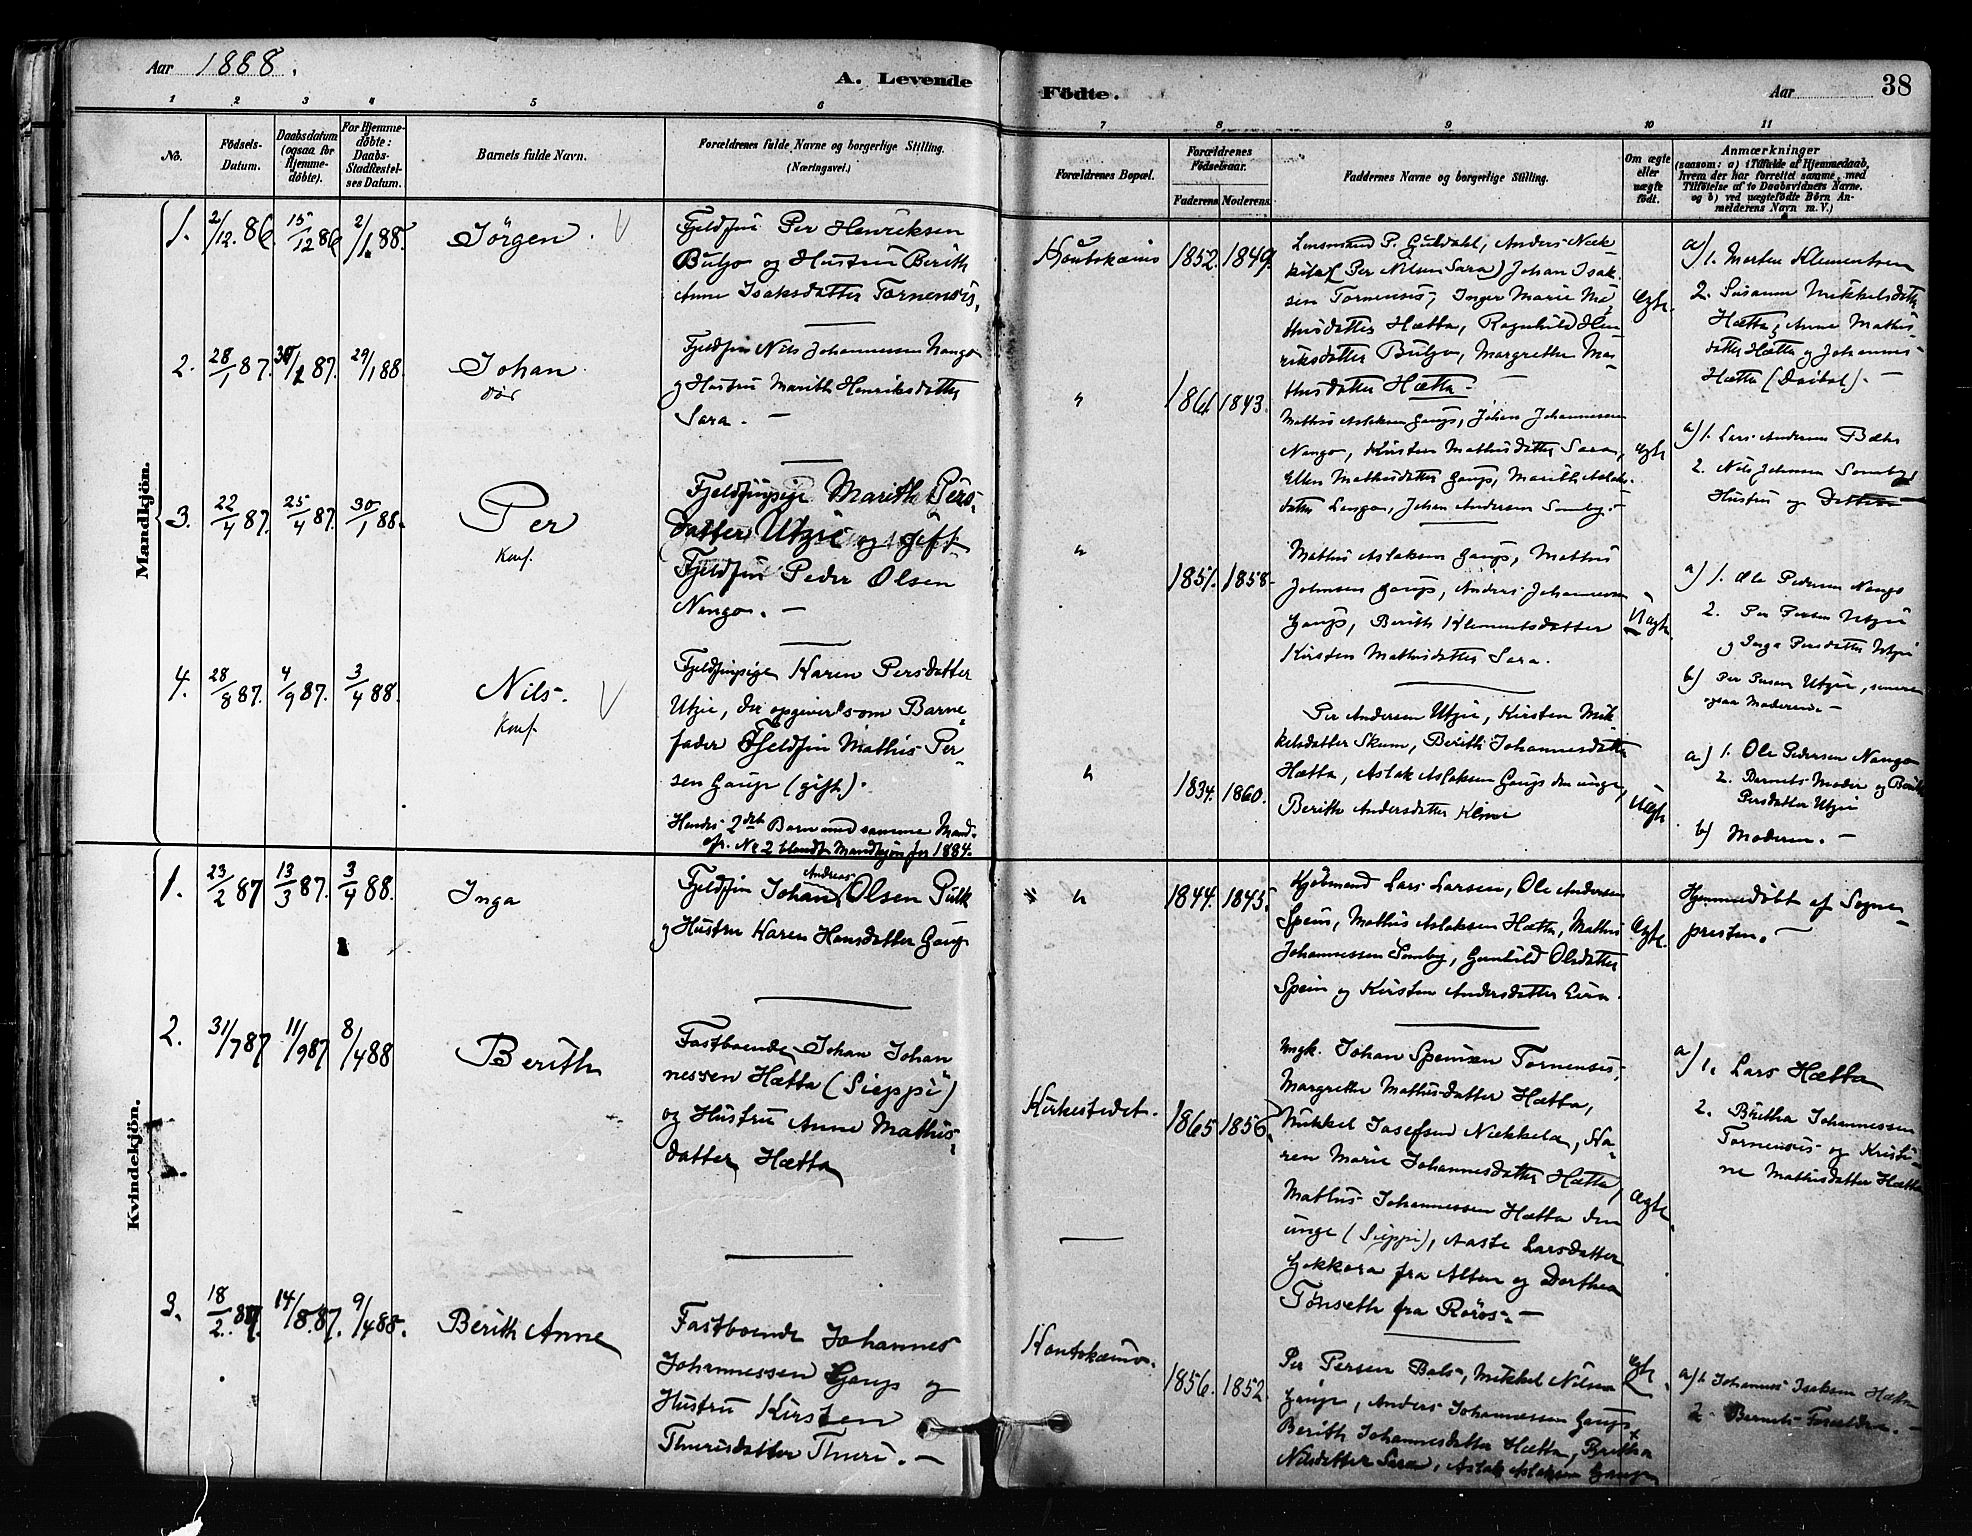 Aar 1888.
A. Levende
Födte.
Aar
38
1
2
3
4
5
6
7
8
9
10
11
No.
Födsels-
Datum.
Daabsdatum
(ogsaa for
Hjemme-
döbte).
For Hjemme-
döbte:
Daabs-
Stadfæstel-
ses Datum.
Barnets fulde Navn.
Forældrenes fulde Navne og borgerlige Stilling.
(Næringsvei.)
Forældrenes Bopæl.
Forældrenes
Födselsaar.
Faderens.
Moderens.
Faddernes Navne og borgerlige Stilling.
Om ægte
eller
uægte
födt.
Anmærkninger
(saasom: a) i Tilfælde af Hjemmedaab,
hvem der har forrettet samme, med
Tilföielse af to Daabsvidners Navne.
og b) ved uægtefödte Börn An-
melderens Navn m. V.)
Mandkjön.
1.
2/12.86.
15/12 86
2/1.88.
Jörgen.
Fjeldfin Per Henriksen
Buljo og Hustru Berith
Anne Isaksdatter Tornensis.
Koutokæino
1852
1849.
Lensmand P. Guldahl, Anders Næk-
kila (Per Nilsen Sara) Johan Isak-
sen Tornensis, Inger Marie Ma-
thisdatter Hætta, Ragnhild Hen-
riksdatter Buljo, Margrethe Ma-
thisdatter Hætta.
Ægte.
a) 1. Morten Klementsen
2. Susanne Mikkelsdatter
Hætta, Anne Mathis-
datter Hætta og Johannes
Hætta (Daibal). —
2.
28/1 87.
30/1 87.
29/1 88.
Johan
död
Fjeldfin Nils Johannessen Nango
og Hustru Marith Henriksdatter
Sara. —
"
1861
1843.
Mathis Aslaksen Gaup, Johan Johannessen
Nango, Kirsten Mathisdatter Sara,
Ellen Mathisdatter Gaup, Marith Aslaks-
datter Lango, Johan Andersen Somby.
Ægte
a) 1. Lars Andersen Bæhr
2. Nils Johnsen Somby
Hustru og Datter
3.
22/4 87.
25/4 87.
30/1 88.
Per
Konf.
Fjeldfinpige Marith Pers-
datter Utzie og gift
Fjeldfin Peder Olsen
Nango. —
"
1851.
1858.
Mathis Aslaksen Gaup, Mathis
Johnsen Gaup, Anders Johannessen
Gaup, Berith Klemetsdatter
Kirsten Mathisdatter Sara.
Uægte
a) 1. Ole Pedersen Nango
2. Per Persen Utzie
og Inga Persdatter Utzie
b) Per Persen Utzie, senere
ogsaa Moderen. —
4.
28/8 87.
4/9 87.
3/4 88.
Nils.
Konf.
Fjeldfinpige Karen Persdatter
Utzie, der opgiver som Barne-
fader Fjeldfin Mathis Per-
sen Gaup (gift).
Hendes 2det Barn med samme Mand.
cfr. No 2 blandt Mandkjön for 1884.
"
1834.
1860.
Per Andersen Utzie, Kirsten Mik-
kelsdatter Skum, Berith Johannesdatter
Hætta, Aslak Aslaksen Gaup den unge,
Berith Andersdatter
Uægte
a) 1. Ole Pedersen Nango
2. Barnets Moder og Berith
Persdatter Utzie
b) Moderen. —
Kvindekjön.
1.
23/2 87
13/3 87.
3/4 88.
Inga
Fjeldfin Johan Andreas Olsen Pulk
og Hustru Karen Hansdatter Gaup
"
1844.
1845.
Kjöbmand Lars Larsen, Ole Andersen
Spein, Mathis Aslaksen Hætta, Mathis
Johannessen Somby, Gunhild Olsdatter
Spein og Kirsten Andersdatter Eira.
Ægte.
Hjemmedöbt af Sogne-
presten. —
2.
31/7 87
11/9 87
8/4 88
Berith
Fastboende Johan Johan
nessen Hætta (Sieppi)
og Hustru Anne Mathis-
datter Hætta
Kirkestedet.
1865
1856
Ungk. Johan Speinsen Tornensis,
Margrethe Mathisdatter Hætta,
Mikkel Josefsen Nækkela, Ka-
ren Marie Johannesdatter Hætta,
Mathis Johannessen Hætta den
unge (Sieppi), Aaste Larsdatter
fra Alten og Dorthea
Tönseth fra Röros. —
Ægte.
a) 1. Lars Hætta
2. Britha Johannessen
Tornensis og Kristi-
ne Mathisdatter Hætta
3.
18/2. 87.
14/8.87.
9/4 88.
Berith Anne
Fastboende Johannes
Johannessen Gaup og
Hustru Kirsten
Thurisdatter Thuri. —
Koutokæino.
1856.
1852.
Per Persen Bals, Mikkel Nilsen
Gaup, Anders Johannessen Gaup
Berith Johannesdatter Hætta, Britha
Nilsdatter Sara, Aslak Aslaksen Gaup
Ægte
a) 1. Johannes Isaksen Hætta
2. Barnets Forældre. —